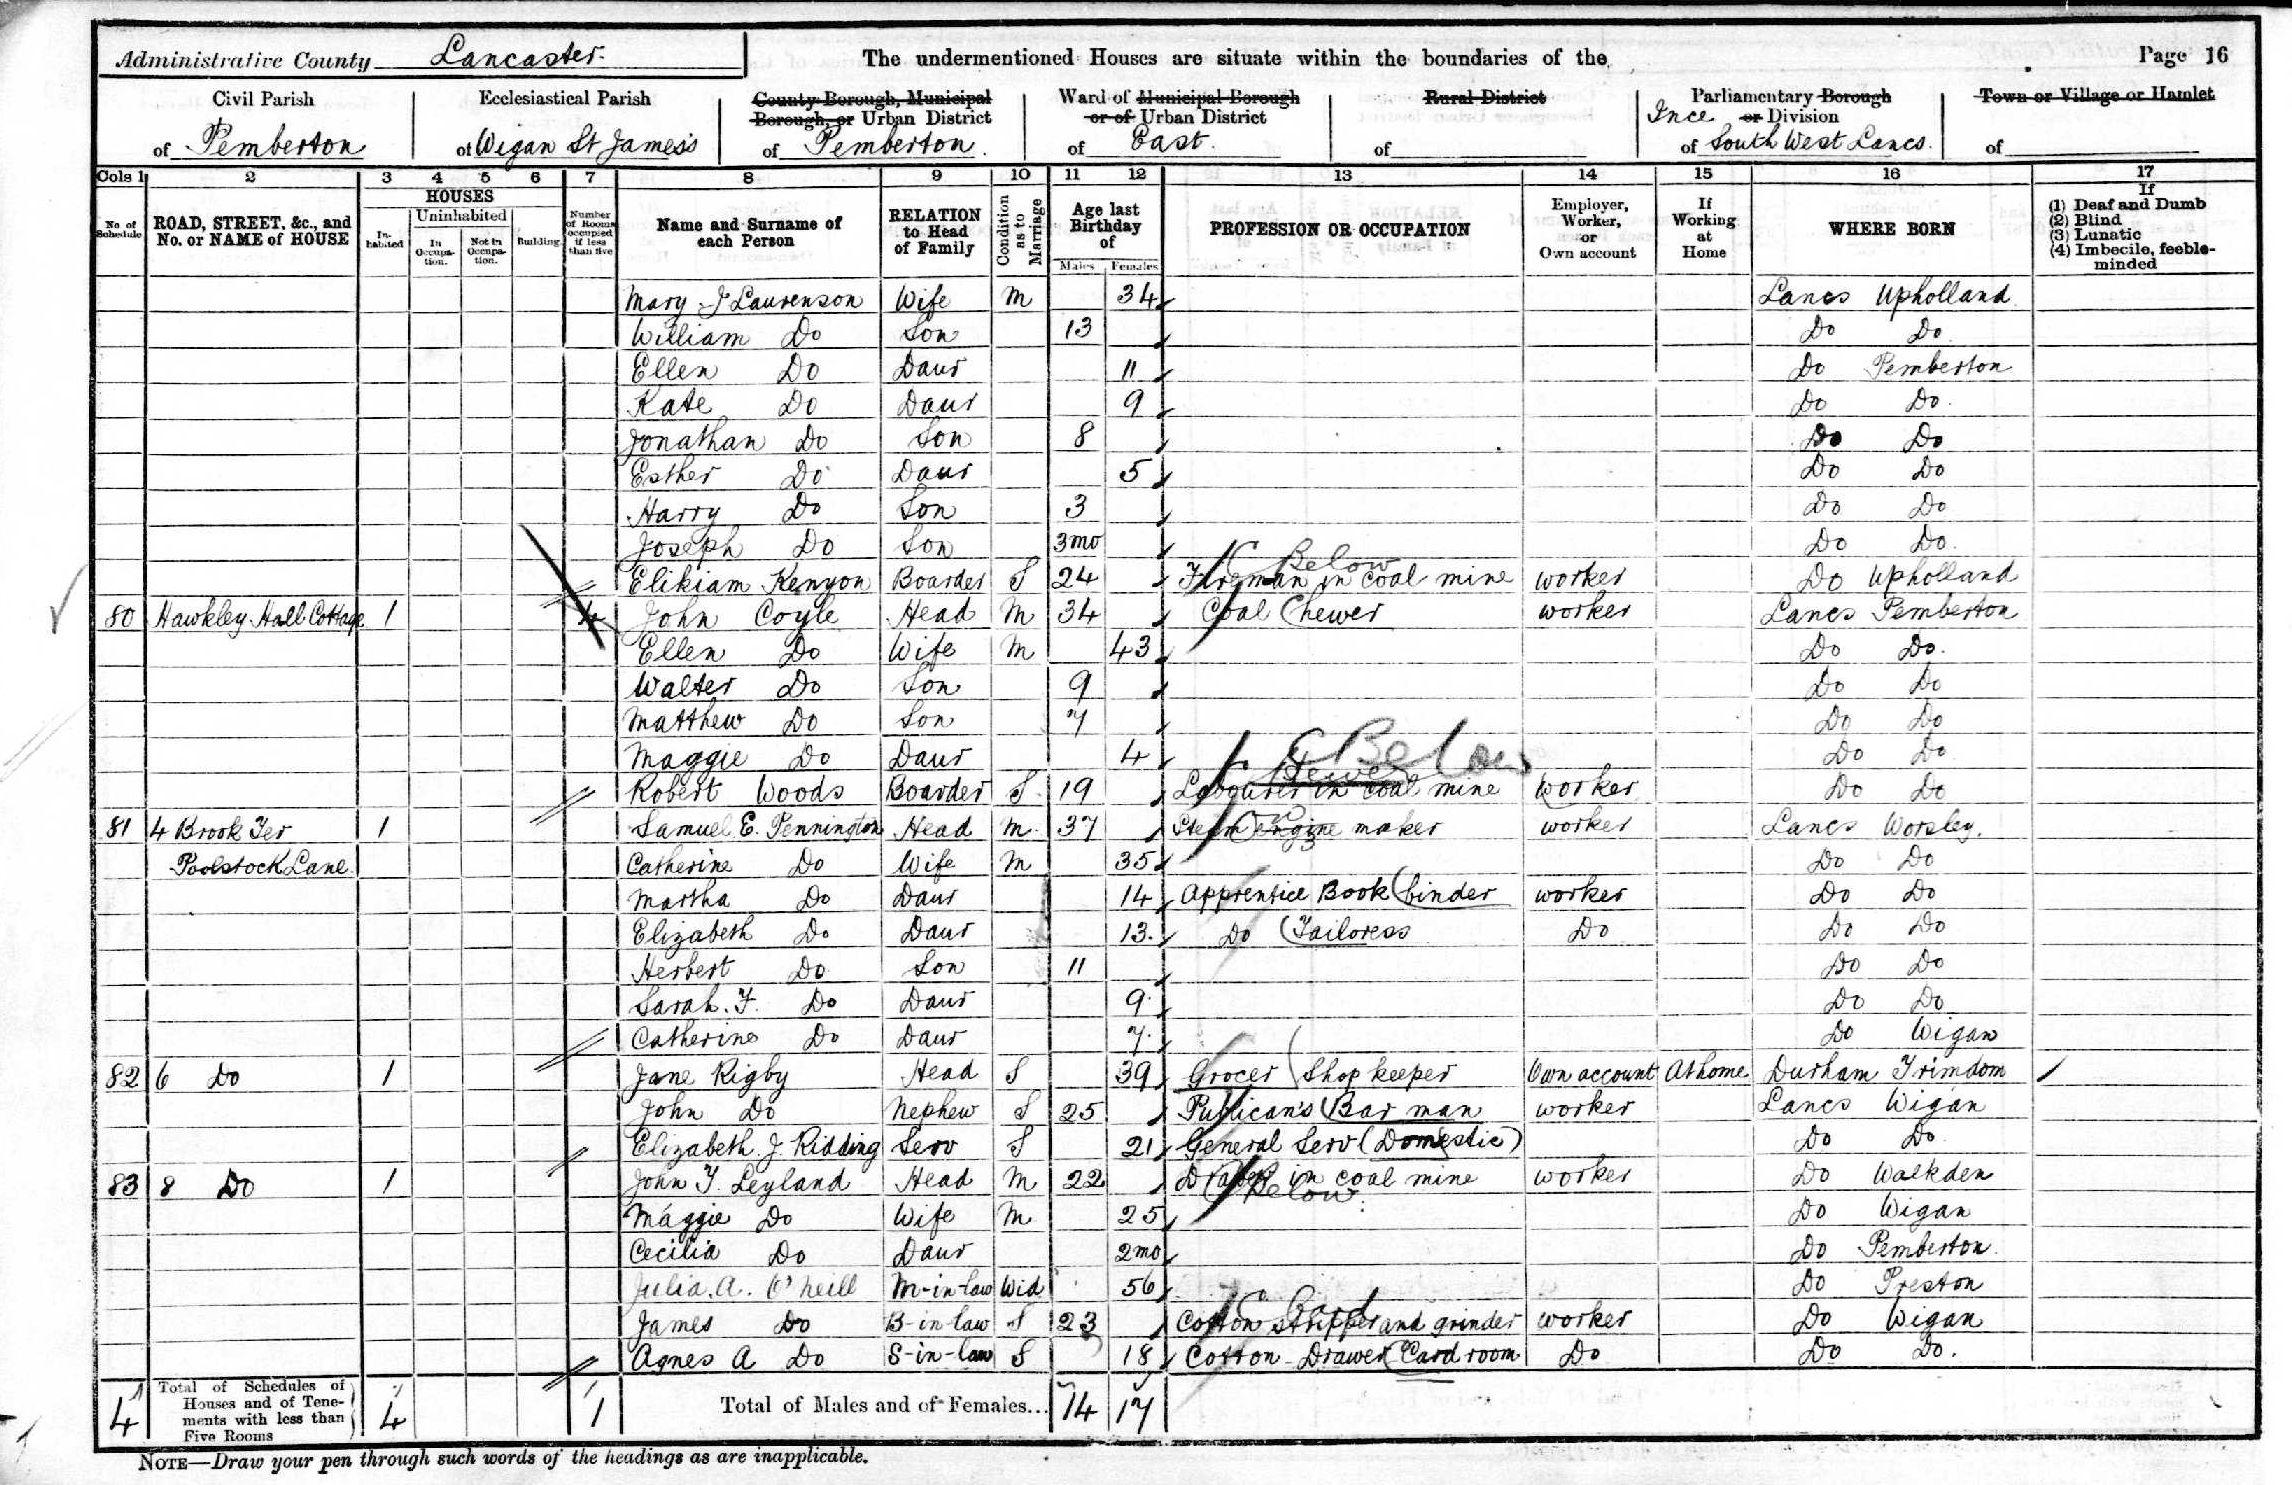 Administrative County Lancaster. The undermentioned Houses are situate within the boundaries of the Page 16
Civil Parish of Pemberton
Ecclesiastical Parish of Wigan St James's
County Borough, Municipal Borough, or Urban District of Pemberton.
Ward of Municipal Borough or of Urban District of East.
Rural District of
Parliamentary Borough or Division of Ince South West Lancs.
Town or Village or Hamlet of
Cols 1 2 3 4 5 6 7 8 9 10 11 12 13 14 15 16 17
No of Schedule
ROAD, STREET, &c., and No. or NAME of HOUSE
HOUSES
Inhabited
Uninhabited
In Occupation.
Not in Occupation.
Building
Number of Rooms occupied if less than five
Name and Surname of each Person
RELATION to Head of Family
Condition as to Marriage
Age last Birthday of
Males Females
PROFESSION OR OCCUPATION
Employer, Worker, or Own account
If Working at Home
WHERE BORN
If
(1) Deaf and Dumb
(2) Blind
(3) Lunatic
(4) Imbecile, feeble-minded
Mary J Laurenson Wife M 34 Lancs Upholland
William Do Son 13 Do Do
Ellen Do Daur 11 Do Pemberton
Kate Do Daur 9 Do Do
Jonathan Do Son 8 Do Do
Esther Do Daur 5 Do Do
Harry Do Son 3 Do Do
Joseph Do Son 3mo Do Do
Below
Elikiam Kenyon Boarder S 24 Fireman in coal mine worker Do Upholland
80 Hawkley Hall Cottage 1 4 John Coyle Head M 34 Coal hewer worker Lancs Pemberton
Ellen Do Wife M 43 Do Do.
Walter Do Son 9 Do Do
Matthew Do Son 7 Do Do
Maggie Do Daur 4 Do Do
Hewer Below
Robert Woods Boarder S 19 Labourer in coal mine worker Do Do
81 4 Brook Ter 1 Samuel E. Pennington Head M 37 Steam engine maker worker Lancs Worsley.
Poolstock Lane Catherine Do Wife M 35 Do Do
Martha Do Daur 14 Apprentice Book binder worker Do Do
Elizabeth Do Daur 13 Do Tailoress Do Do Do
Herbert Do Son 11 Do Do
Sarah. F. Do Daur 9 Do Do
Catherine Do Daur 7 Do Wigan
82 6 Do 1 Jane Rigby Head S 39 Grocer Shop keeper Own account At home Durham Trimdom
John Do Nephew S 25 Publican's Bar man worker Lancs Wigan
Elizabeth. J. Ridding Serv S 21 General Serv (Domestic) Do Do
83 8 Do 1 John T. Leyland Head M 22 Drawer in coal mine worker Do Walkden
Below
Maggie Do Wife M 25 Do Wigan
Cecilia Do Daur 2mo Do Pemberton
Julia. A. O'Neill M-in-law Wid 56 Do Preston
Card
James Do B-in-law S 23 Cotton stripper and grinder worker Do Wigan
Agnes A Do S-in-law S 18 Cotton Drawer Card room Do Do Do.
4 Total of Schedules of Houses and of Tenements with less than Five Rooms 4 1 Total of Males and of Females... 14 17
NOTE—Draw your pen through such words of the headings as are inapplicable.